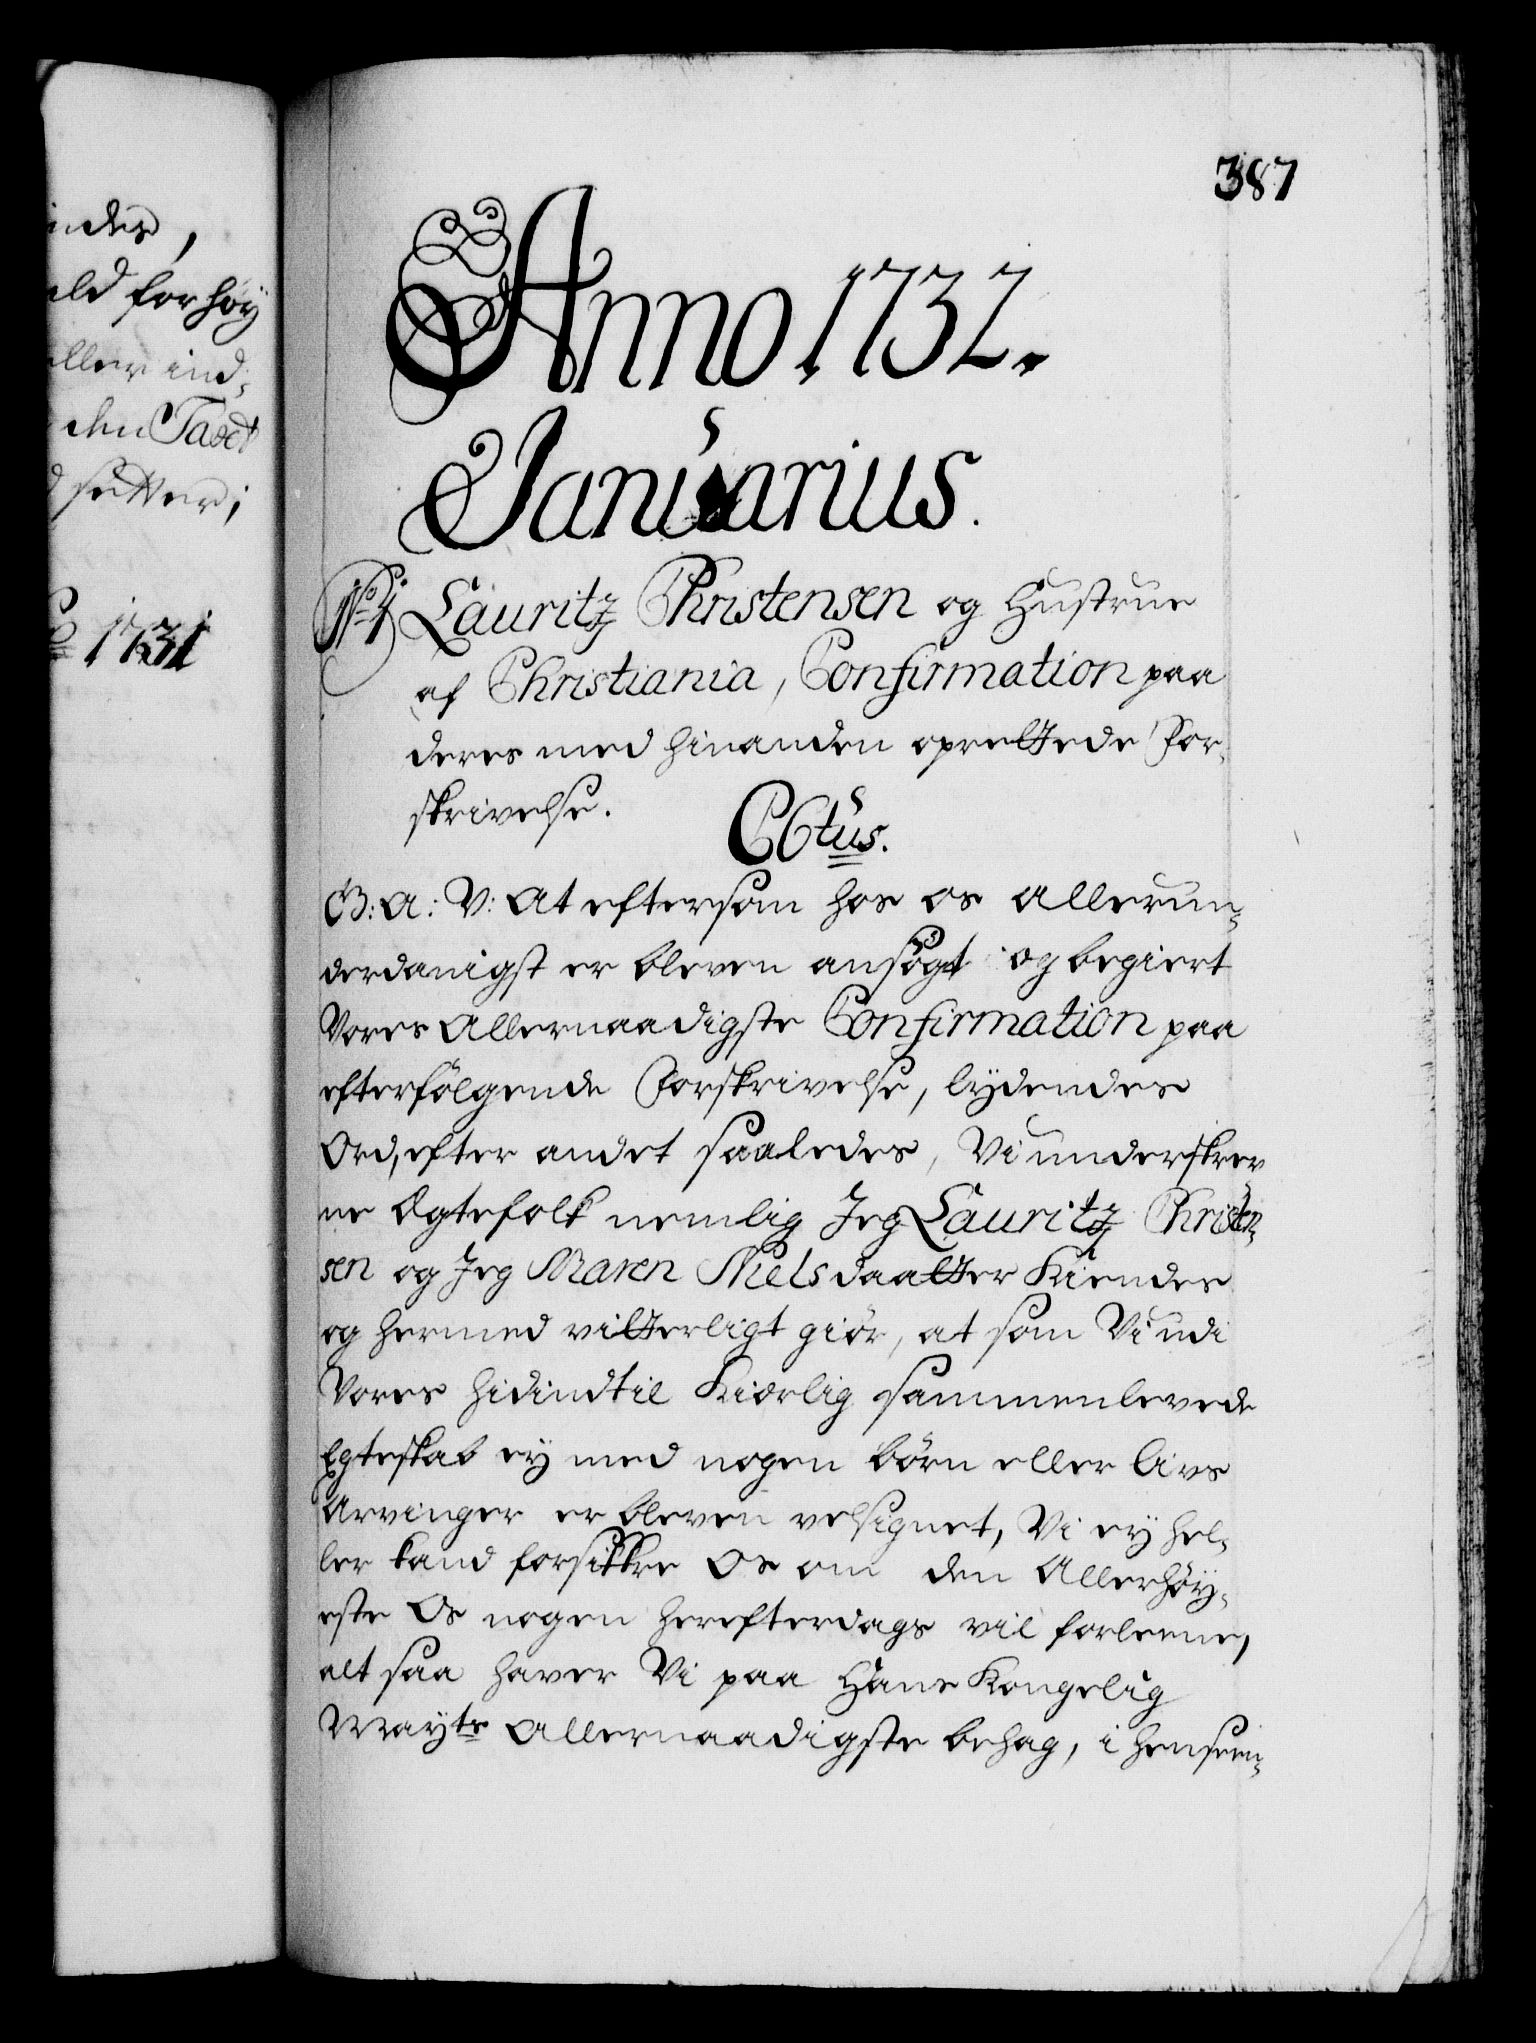 387
inder,
ald forhøy
eller ind¬
den Tavet
d setter;
1731
Anno 1732.
Januarius.
No 1 Lauritz Christensen og Hustrue
af Christiania, Confirmation paa
deres med hinanden oprettede For¬
skrivelse.
C6tus.
G: A: V: At eftersom hos os allerun¬
derdanigst er bleven ansøgt og begiert
Vores Allernaadigste Confirmation paa
efterfølgende Forskrivelse, lydendes
Ord, efter andet saaledes, Vi underskrev
ne Ægtefolk nemlig Jeg Lauritz Christen¬
sen og Jeg Maren Nielsdaatter Kiendes
og hermed vitterligt giør, at som Vi udi
Vores hidindtil Kiærlig sammenlevede
Egteskab ey med nogen børn eller Livs
Arvinger er bleven velsignet, Vi ey hel¬
ler kand forsikkre Os om den Allerhøy¬
este Os nogen herefterdags vil forleene,
alt saa haver Vi paa Hans Kongelig
Mayts Allernaadigste behag, i henseen¬